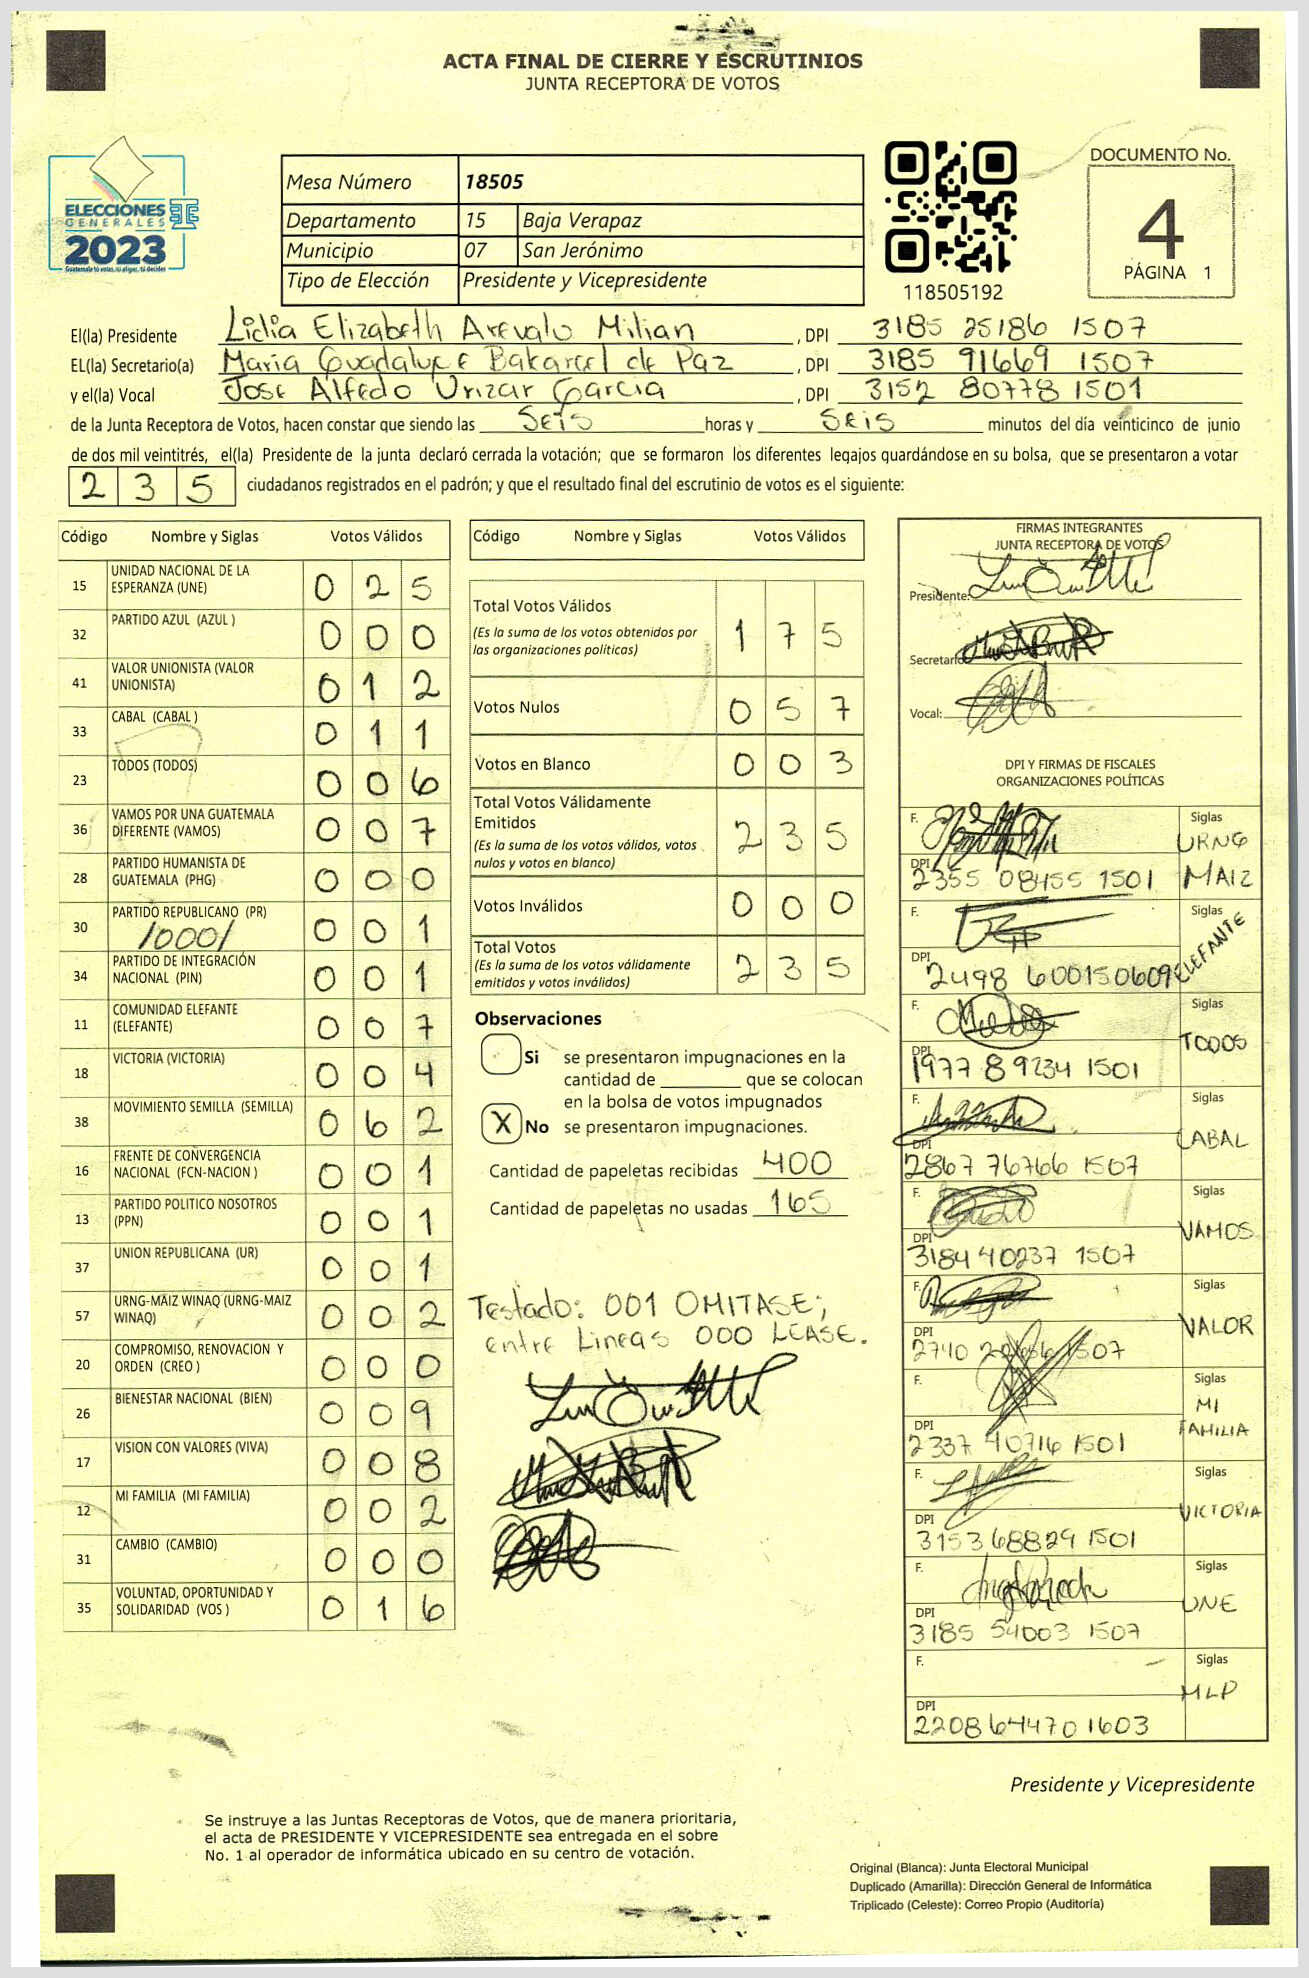 ACTA FINAL DE CIERRE Y ESCRUTINIOS
JUNTA RECEPTORA DE VOTOS
ELECCIONES
GENERALES
2023
Guatemala tú votas, tú eliges, tú decides
Mesa Número 18505
Departamento 15 Baja Verapaz
Municipio 07 San Jerónimo
Tipo de Elección Presidente y Vicepresidente
118505192
DOCUMENTO No.
4
PÁGINA 1
El(la) Presidente Lidia Elizabeth Arevalo Milian , DPI 3185 25186 1507
EL(la) Secretario(a) Maria Guadalupe Bakarcel de Paz , DPI 3185 91669 1507
y el(la) Vocal Jose Alfedo Urizar Garcia , DPI 3152 80778 1501
de la Junta Receptora de Votos, hacen constar que siendo las Seis horas y Seis minutos del día veinticinco de junio
de dos mil veintitrés, el(la) Presidente de la junta declaró cerrada la votación; que se formaron los diferentes legajos guardándose en su bolsa, que se presentaron a votar
2 3 5 ciudadanos registrados en el padrón; y que el resultado final del escrutinio de votos es el siguiente:
Código Nombre y Siglas Votos Válidos
15 UNIDAD NACIONAL DE LA ESPERANZA (UNE) 0 2 5
32 PARTIDO AZUL (AZUL ) 0 0 0
41 VALOR UNIONISTA (VALOR UNIONISTA) 0 1 2
33 CABAL (CABAL ) 0 1 1
23 TODOS (TODOS) 0 0 6
36 VAMOS POR UNA GUATEMALA DIFERENTE (VAMOS) 0 0 7
28 PARTIDO HUMANISTA DE GUATEMALA (PHG) 0 0 0
30 PARTIDO REPUBLICANO (PR) /000/ 0 0 1
34 PARTIDO DE INTEGRACIÓN NACIONAL (PIN) 0 0 1
11 COMUNIDAD ELEFANTE (ELEFANTE) 0 0 7
18 VICTORIA (VICTORIA) 0 0 4
38 MOVIMIENTO SEMILLA (SEMILLA) 0 6 2
16 FRENTE DE CONVERGENCIA NACIONAL (FCN-NACION ) 0 0 1
13 PARTIDO POLITICO NOSOTROS (PPN) 0 0 1
37 UNION REPUBLICANA (UR) 0 0 1
57 URNG-MAIZ WINAQ (URNG-MAIZ WINAQ) 0 0 2
20 COMPROMISO, RENOVACION Y ORDEN (CREO ) 0 0 0
26 BIENESTAR NACIONAL (BIEN) 0 0 9
17 VISION CON VALORES (VIVA) 0 0 8
12 MI FAMILIA (MI FAMILIA) 0 0 2
31 CAMBIO (CAMBIO) 0 0 0
35 VOLUNTAD, OPORTUNIDAD Y SOLIDARIDAD (VOS ) 0 1 6
Código Nombre y Siglas Votos Válidos
Total Votos Válidos 1 7 5
(Es la suma de los votos obtenidos por
las organizaciones políticas)
Votos Nulos 0 5 7
Votos en Blanco 0 0 3
Total Votos Válidamente
Emitidos 2 3 5
(Es la suma de los votos válidos, votos
nulos y votos en blanco)
Votos Inválidos 0 0 0
Total Votos 2 3 5
(Es la suma de los votos válidamente
emitidos y votos inválidos)
Observaciones
Si se presentaron impugnaciones en la
cantidad de ________ que se colocan
en la bolsa de votos impugnados
X No se presentaron impugnaciones.
Cantidad de papeletas recibidas 400
Cantidad de papeletas no usadas 165
Testado: 001 OMITASE;
entre Lineas 000 LEASE.
FIRMAS INTEGRANTES
JUNTA RECEPTORA DE VOTOS
Presidente:
Secretario:
Vocal:
DPI Y FIRMAS DE FISCALES
ORGANIZACIONES POLÍTICAS
F. Siglas URNG MAIZ
DPI 2355 08455 1501
F. Siglas ELEFANTE
DPI 2498 60015 0609
F. Siglas TODOS
DPI 1977 89234 1501
F. Siglas CABAL
DPI 2867 76766 1507
F. Siglas VAMOS
DPI 3184 40237 1507
F. Siglas VALOR
DPI 2740 1507
F. Siglas MI FAMILIA
DPI 2337 40716 1501
F. Siglas VICTORIA
DPI 3153 68829 1501
F. Siglas UNE
DPI 3185 54003 1507
F. Siglas MLP
DPI 2208 64470 1603
Presidente y Vicepresidente
Se instruye a las Juntas Receptoras de Votos, que de manera prioritaria,
el acta de PRESIDENTE Y VICEPRESIDENTE sea entregada en el sobre
No. 1 al operador de informática ubicado en su centro de votación.
Original (Blanca): Junta Electoral Municipal
Duplicado (Amarilla): Dirección General de Informática
Triplicado (Celeste): Correo Propio (Auditoría)